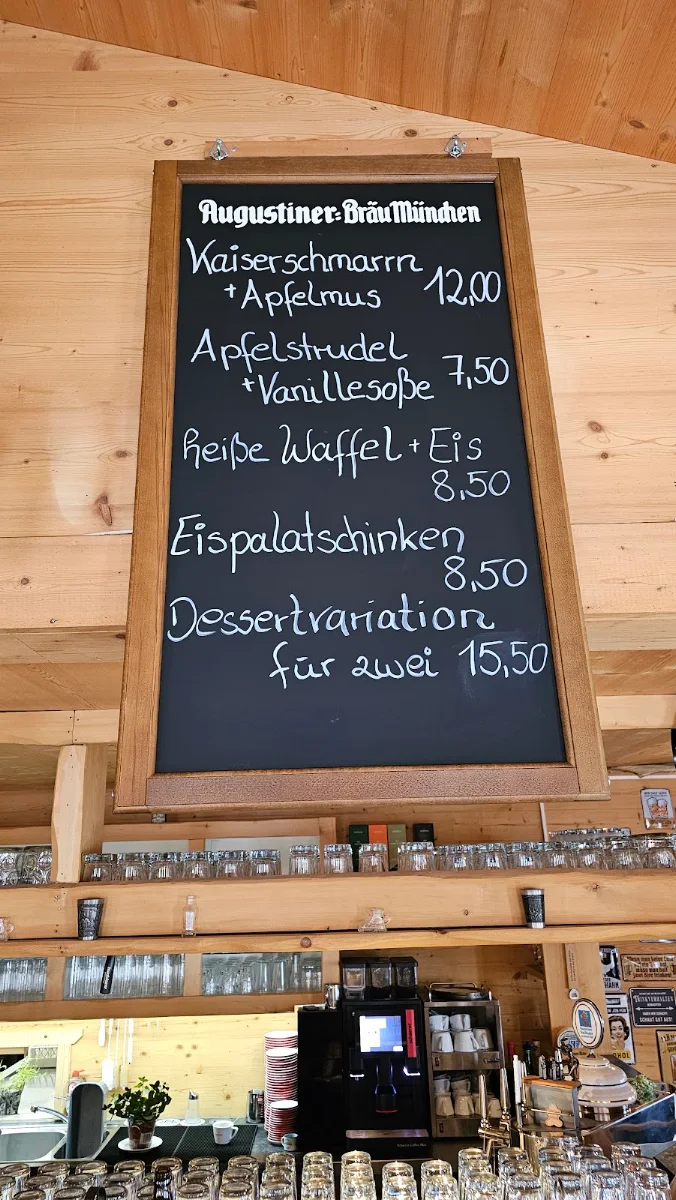 Augustiner-Bräu München
Kaiserschmarrn
+ Apfelmus 12,00
Apfelstrudel
+ Vanillesoße 7,50
heiße Waffel + Eis
8,50
Eispalatschinken
8,50
Dessertvariation
für zwei 15,50